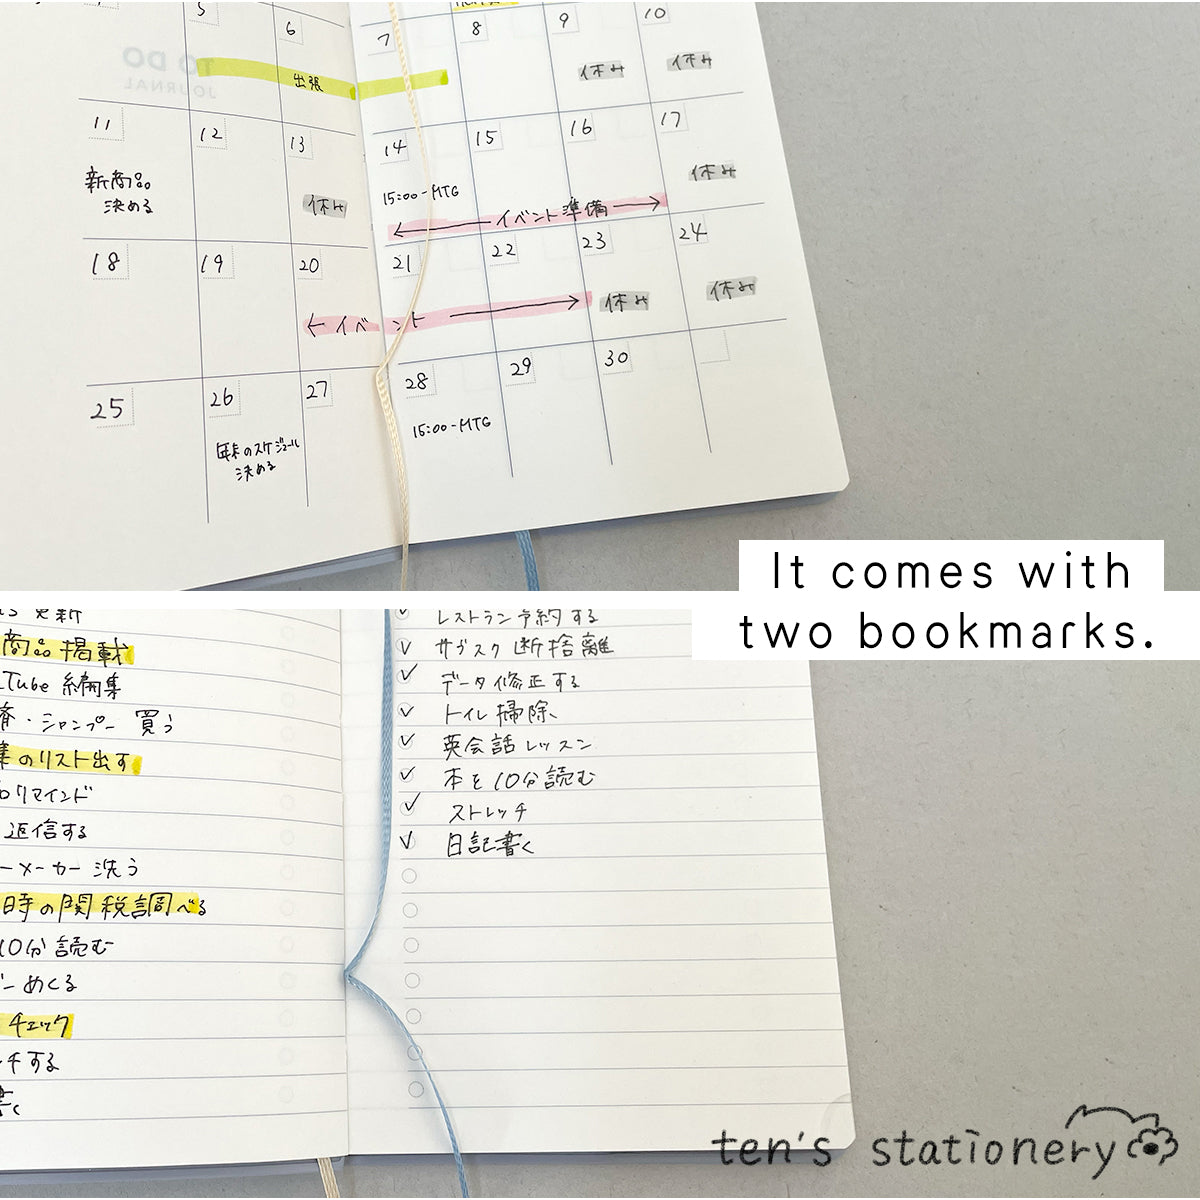 5
6
7
8
9
10
出張
休み
休み
TO DO
JOURNAL
11
12
13
14
15
16
17
新商品
決める
休み
15:00-MTG
イベント準備
休み
18
19
20
21
22
23
24
イベント
休み
休み
25
26
27
28
29
30
年末のスケジュール
決める
15:00-MTG
It comes with
two bookmarks.
更新
商品掲載
Tube 編集
・シャンプー 買う
集のリスト出す
リマインド
返信する
ーメーカー 洗う
時の関税調べる
10分 読む
ーめくる
チェック
チする
書く
レストラン予約する
サブスク 断捨離
データ修正する
トイレ掃除
英会話レッスン
本を10分読む
ストレッチ
日記書く
ten's stationery